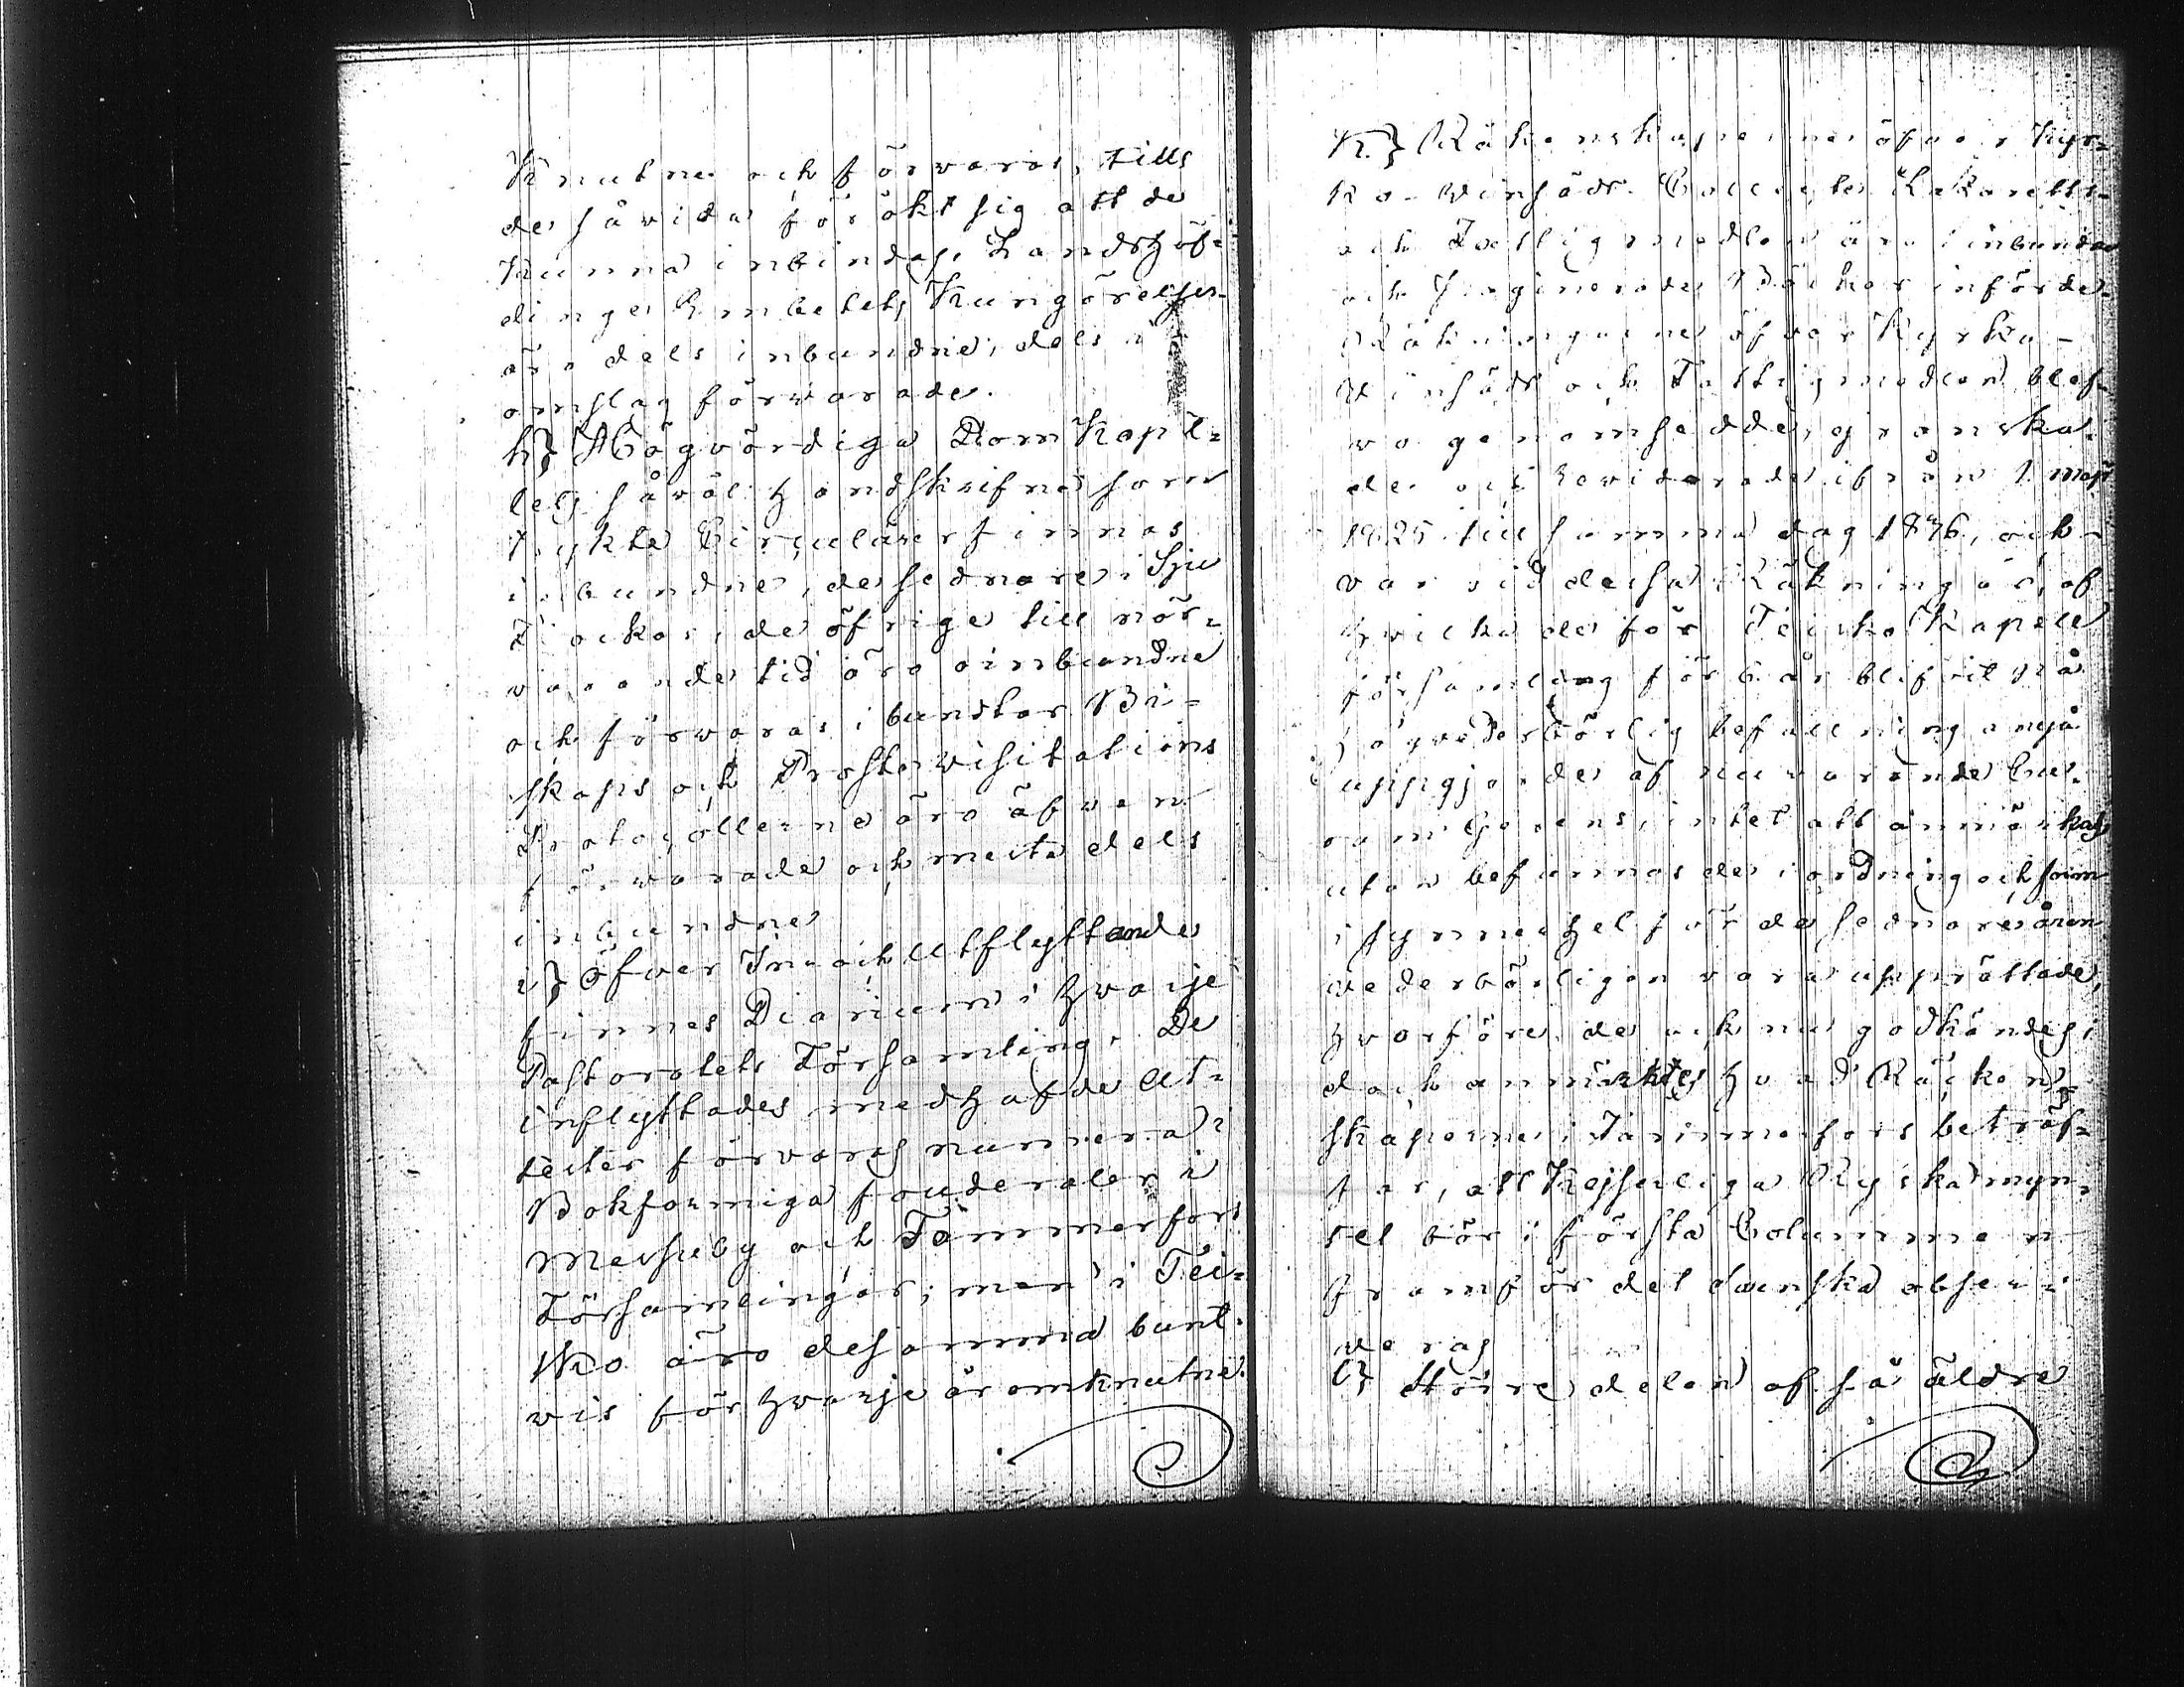 Knutne och förvaras, tills
de såvida förökt sig att de
kunna inbindas. Landshöf-
dinge Embetets Kungörelser
äro dels inbundne, dels i
omslag förvarade.
h} Högvördiga Dom Kapit-
lets såväl handskrifna som
tryckte Circulärer finnas
inbundne, de sednare i Sju
Tjockor, de öfrige till när-
varande tid äro oinbundne
och förvaras i buntar. Bi-
skops och Proste Visitations
Protocollerne äro äfwen
förwarade och mesta dels
inbundne
i} öfwer In- och Utflyttande
finnes Diarium i hvarje
Pastoratets Församling. De
inflyttades medhafde At-
tester förvaras numera i
Bokformiga fouderaler i
Messuby och Tammerfors
Församlingar; men i Tei-
sko äro desamma bunt-
vis för hvarje år omknutne.
K} Räkenskaperne öfver Kyr-
ko- Winsäds- Collecte- Lazaretts-
och Fattigmedlen äro i inbundne
och paginerade Böcker införde.
Räkningarne öfver Kyrko-
Winsäds och Fattigmedlen blef-
vo genomsedde, granska-
de och reviderade ifrån 1 Maji
1825 till samma dag 1836, och
var vid dessa Räkningar, af
hvilka de för Teisko Kapell
församling för 6 år blifvit på
högvederbörlig befallning å nyo
uppgjorde af nuvarande Cu-
ram Gerens, intet att anmärkas
utan befunnos de i ordning och som
i synnerhet för de sednare åren
vederbörligen vara upprättade,
hvarföre de ock nu godkändes;
dock anmärktes hvad Räken-
skaperne i Tammerfors beträf-
far, att Kejserliga Ryska myn-
tet bör i första Columnen
framför det Swenska obser-
veras
l} Större delen af så äldre